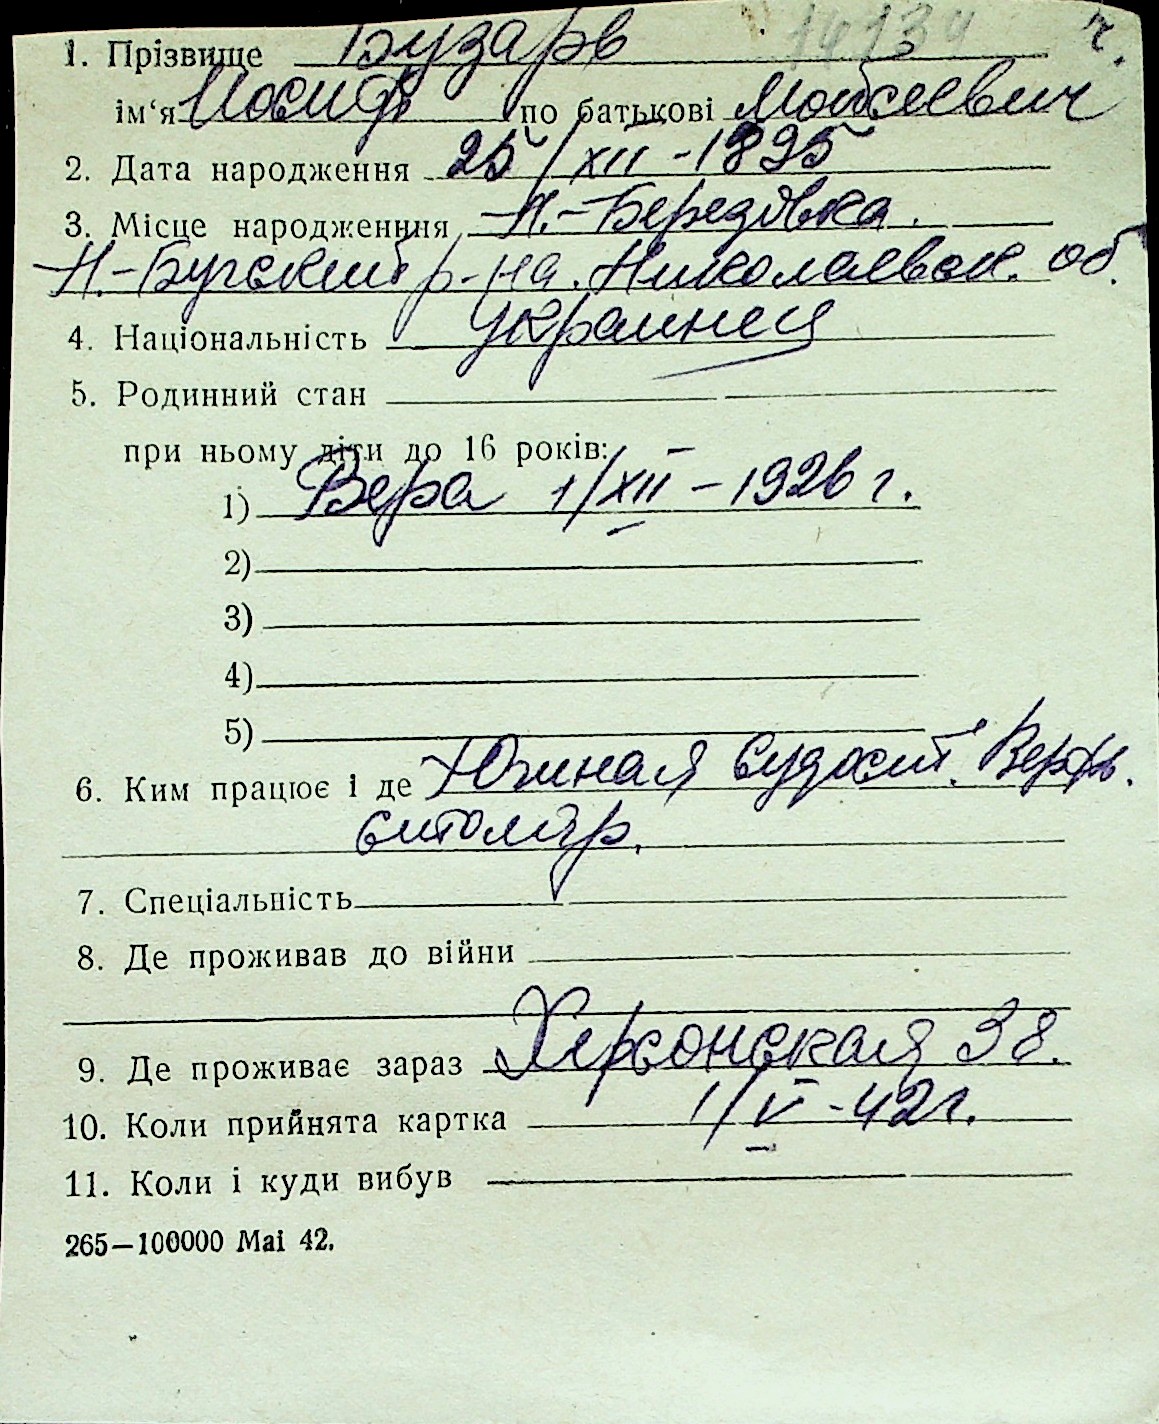 1. Прізвище Бузарь 14134 ч.
ім‘я Иосиф по батькові Мойсеевич
2. Дата народження 25/XII-1895
3. Місце народженння Н.-Березовка.
Н.-Бугский р-на. Николаевск. об.
4. Національність Украинец
5. Родинний стан
при ньому діти до 16 років:
1) Вера 1/XII-1926 г.
2)
3)
4)
5)
6. Ким працює і де Южная Судост. Верфь.
столяр.
7. Спеціальність
8. Де проживав до війни
9. Де проживає зараз Херсонская 38.
10. Коли прийнята картка 1/V-42 г.
11. Коли і куди вибув
265—100000 Mai 42.